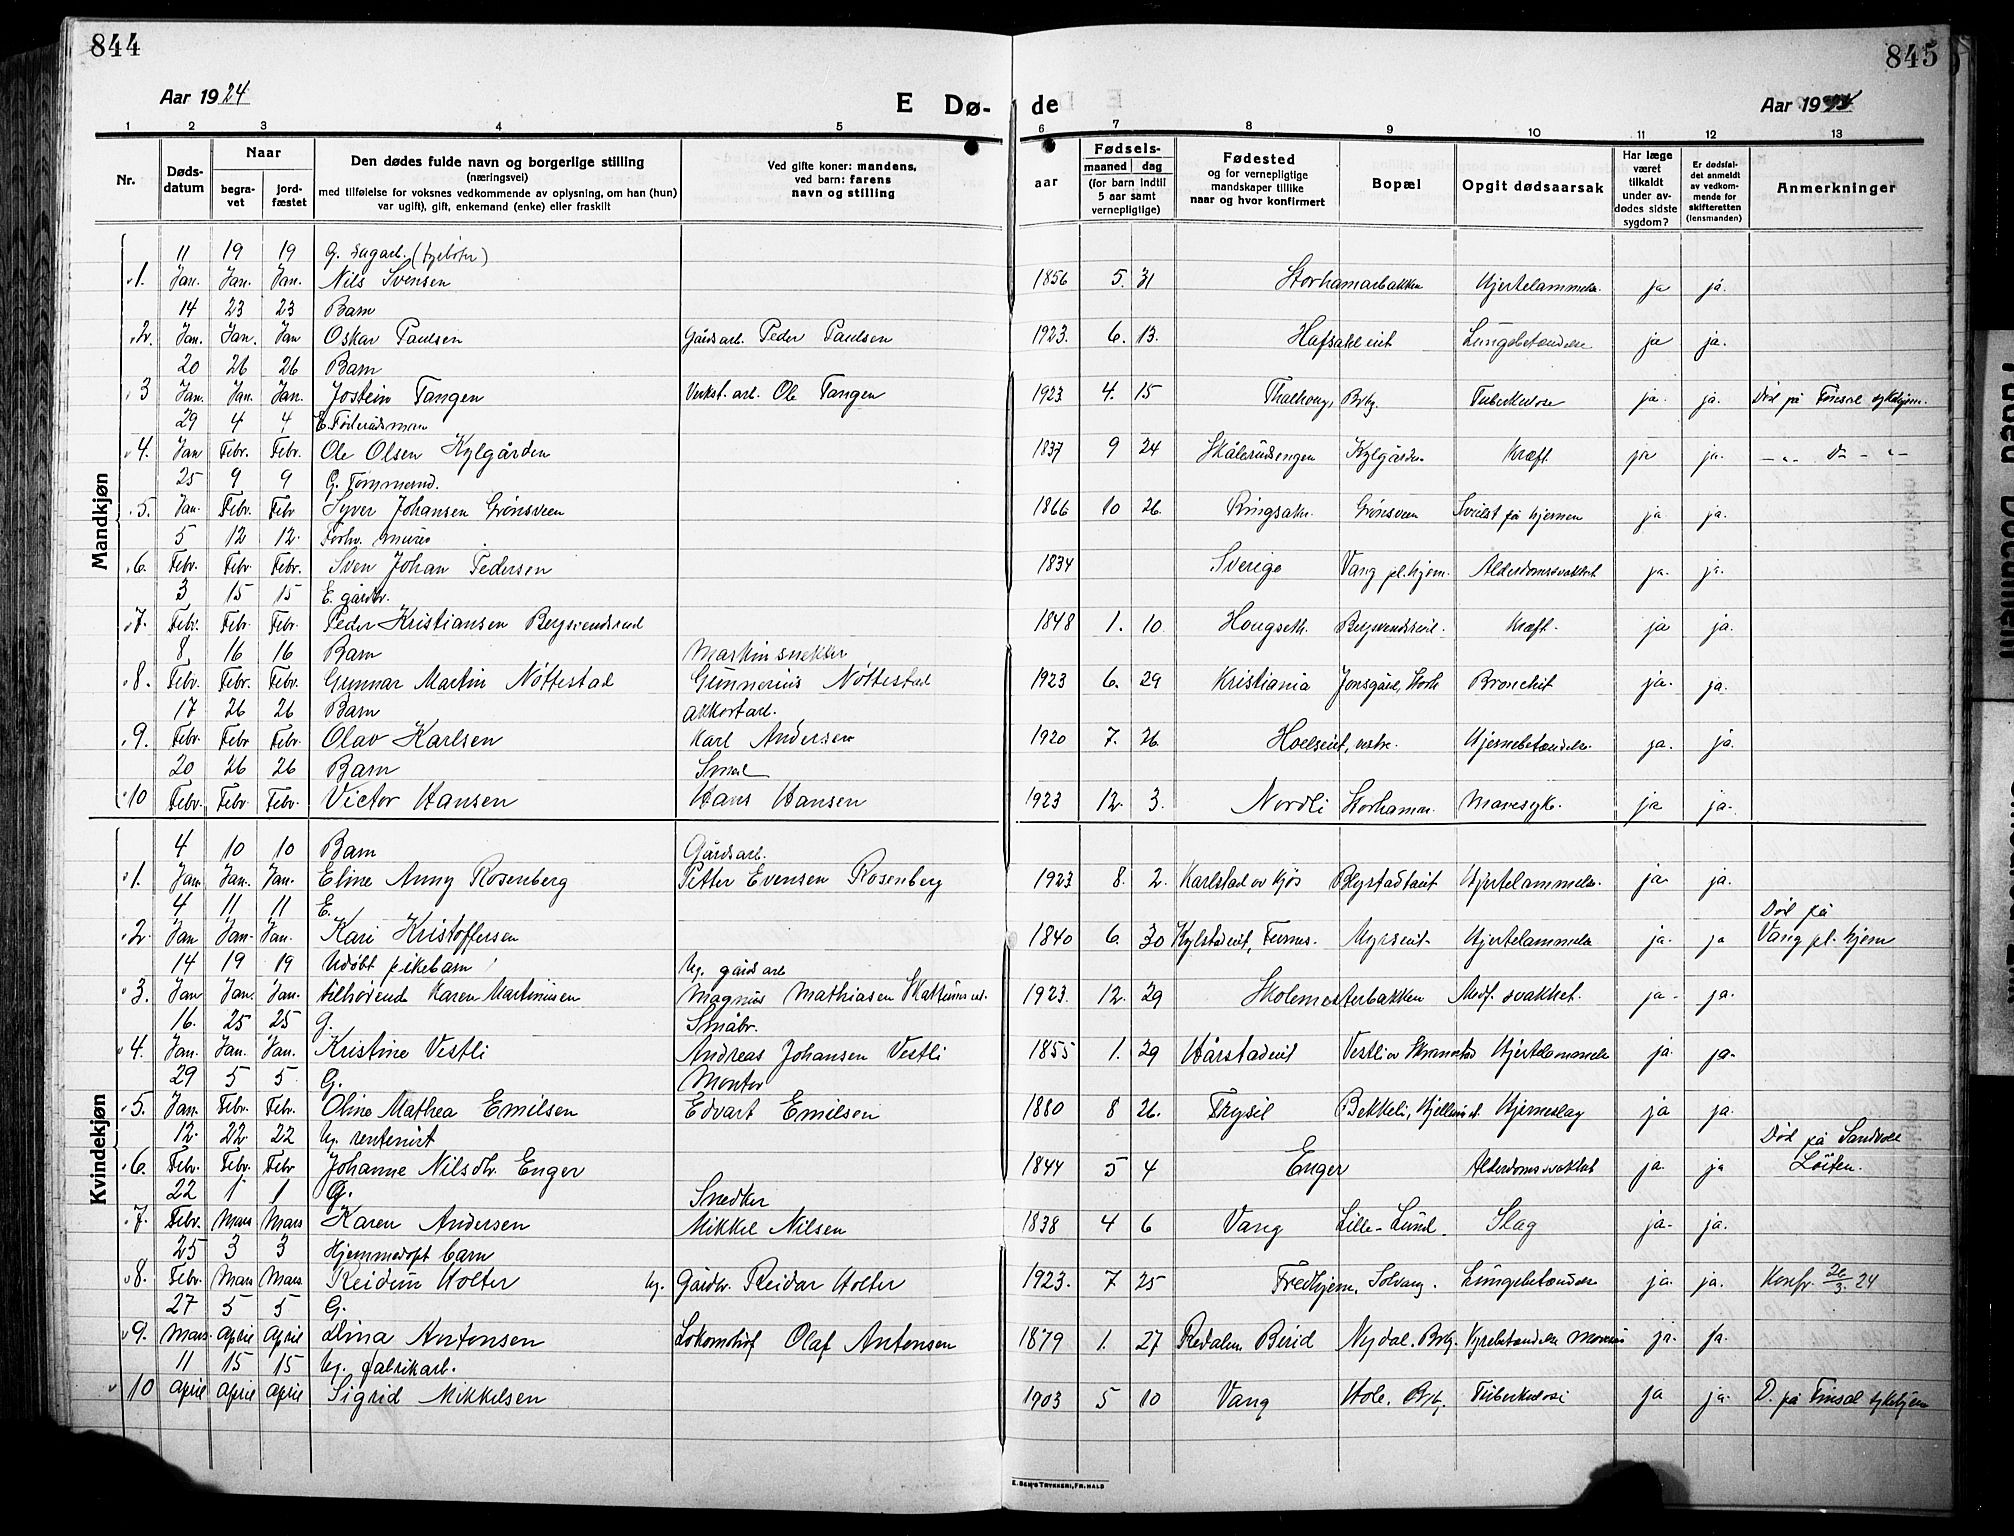 844
845
Aar 1924
E Dø-
de
Aar 1924
1 2 3 4 5 6 7 8 9 10 11 12 13
Nr.
Døds-
datum
Naar
begra-
vet
jord-
fæstet
Den dødes fulde navn og borgerlige stilling
(næringsvei)
med tilføielse for voksnes vedkommende av oplysning, om han (hun)
var ugift), gift, enkemand (enke) eller fraskilt
Ved gifte koner: mandens,
ved barn: farens
navn og stilling
Fødsels-
aar
maaned dag
(for barn indtil
5 aar samt
vernepligtige)
Fødested
og for vernepligtige
mandskaper tillike
naar og hvor konfirmert
Bopæl
Opgit dødsaarsak
Har læge
været
tilkaldt
under av-
dødes sidste
sygdom?
Er dødsfal-
det anmeldt
av vedkom-
mende for
skifteretten
(lensmanden)
Anmerkninger
Mandkjøn
11 19 19 G. sagarb.
1. Jan. Jan. Jan. Nils Svensen 1856 5. 31 Storhamarbakken Hjertelammelse ja ja.
14 23 23 Barn
2. Jan. Jan. Jan Oskar Paulsen Gårdsarb. Peder Paulsen 1923. 6. 13. Hafsaleiet Lungebetændelse ja ja.
20 26 26 Barn
3 Jan. Jan. Jan. Jostein Tangen Verkst. arb. Ole Tangen 1923 4. 15 Thalhoug, Brb. Tuberkulose ja. ja. Død på Finsal sykehjem.
29 4 4 E. Føderådsmann
4. Jan Febr. Febr. Ole Olsen Kylgården 1837 9 24 Skålerudsengen Kylgården Kræft ja ja. — „ D — „ —
25 9 9 G. Tømmermd.
5. Jan. Febr. Febr Syver Johansen Grønsveen 1866 10 26. Ringsaker Grønsveen Svulst på hjernen ja ja.
5 12 12. Forhv. murer
6. Febr. Febr Febr. Sven Johan Pedersen 1834 Sverige Vang pl. hjem. Alderdomssvakhet ja. ja.
3 15 15 E. gårdbr.
7. Febr. Febr Febr. Peder Kristiansen Bergsvendsrud 1848 1. 10. Hougseth. Bergsvendseiet. Kræft. ja ja.
8 16 16 Barn Maskinsnekker
8. Febr. Febr. Febr. Gunnar Martin Nøttestad Gunnerius Nøttestad 1923 6. 29 Kristiania Jonsgård, Storh Bronchit ja. ja.
17 26 26 Barn Akkortarb.
9. Febr. Febr Febr. Olav Karlsen Karl Andersen 1920 7. 26. Hoelseiet, vestre. Hjernebetændelse. ja. ja.
20 26 26 Barn Smed
10 Febr. Febr. Febr. Victor Hansen Hans Hansen 1923 12. 3. Nordli Storhamar. Mavesyk. ja ja.
Kvindekjøn
4 10 10 Barn Gårdsarb.
1. Jan Jan. Jan. Eline Anny Rosenberg Petter Evensen Rosenberg 1923 8. 2. Karlstad ov Kjøs Blystadseiet Hjertelammelse. ja ja.
4 11 11 E. Død på
2. Jan Jan. Jan. Kari Kristoffersen 1840 6. 30 Kylstadeiet, Furnes. Myrseiet Hjertelammelse ja. ja Vang pl. hjem
14 19 19 Udøbt pikebarn Ug. gårdsarb
3. Jan Jan. Jan. tilhørende Karen Martinsen Magnus Mathiasen Skattumseiet. 1923. 12. 29 Skolemesterbakken Medf. svakhet. ja. ja.
16. 25 25 G. Småbr.
4. Jan. Jan. Jan. Kristine Vestli Andreas Johansen Vestli 1855 1. 29 Hårstadeiet Vestli ov Skramstad Hjertelammelse ja ja.
29 5 5. G. Montør
5. Jan. Febr. Febr. Oline Mathea Emilsen Edvart Emilsen 1880 8 26. Trysil Bekkeli, Hjelleiet. Hjerneslag ja ja.
12. 22. 22 Ug. rentenist Død på Sandvoll
6. Febr. Febr. Febr Johanne Nilsdtr. Enger 1844 5 4 Enger Alderdomssvakhet ja. ja Løiten.
22 1 1 G. Snedker
7. Febr. Mars Mars Karen Andersen Mikkel Nilsen 1838 4 6 Vang Lille-Lund. Slag ja. ja.
25 3 3 Hjemmedøpt barn
8. Febr Mars Mars. Reidun Holter Ug. Gårdbr. Reidar Holter 1923. 7 25 Fredhjem, Solvang. Lungebetændelse ja. ja. Konfr 26/3. 24
27 5 5. G.
9. Mars. April April Dina Antonsen Lokomotivf Olaf Antonsen 1879 1. 27 Redalen Birid Nydal. Brb. Nyrebetændelse ja. ja.
11 15 15 Ug. fabrikarb.
10 April April April Sigrid Mikkelsen 1903 5 10 Vang Hole. Brb. Tuberkulose ja ja. D. på Finsal sykehjem
E. SEM'S TRYKKERI, FR.HALD